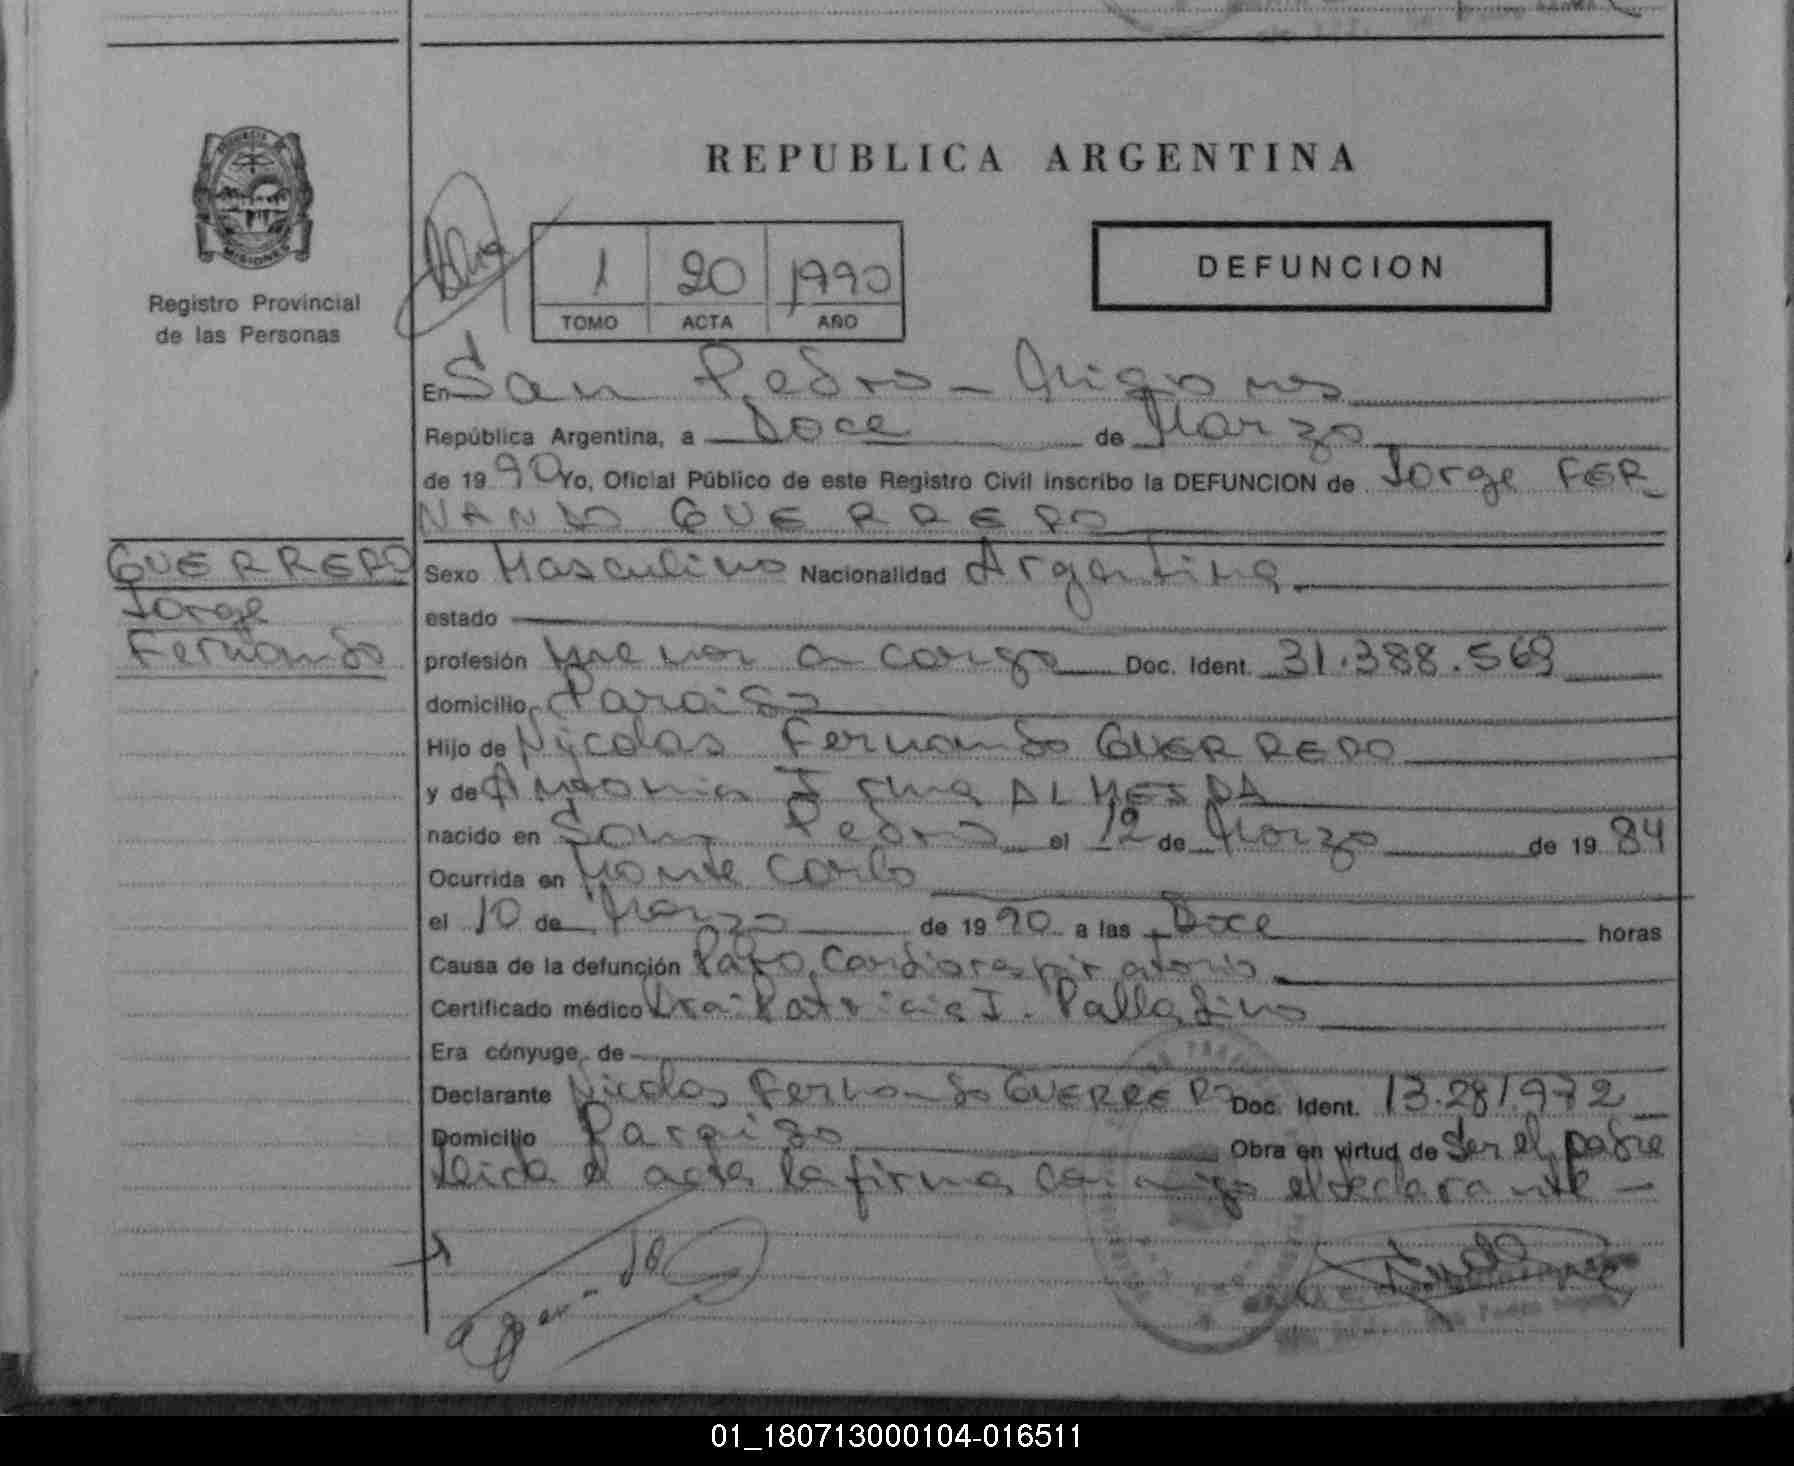 REPUBLICA ARGENTINA
MISIONES
Registro Provincial
de las Personas
1 20 1990
TOMO ACTA AÑO
DEFUNCION
En San Pedro - Misiones
República Argentina, a Doce de Marzo
de 1990 Yo, Oficial Público de este Registro Civil inscribo la DEFUNCION de Jorge FER
NANDO GUERRERO
GUERRERO
Jorge
Fernando
Sexo Masculino Nacionalidad Argentina
estado
profesión menor a cargo Doc. Ident. 31.388.569
domicilio Paraiso
Hijo de Nicolas Fernando GUERRERO
y de Antonia Irma ALMEIDA
nacido en San Pedro el 12 de Marzo de 1984
Ocurrida en Monte Carlo
el 10 de Marzo de 1990 a las Doce horas
Causa de la defunción Paro Cardiorespiratorio
Certificado médico Dra. Patricia I. Palladino
Era cónyuge de
Declarante Nicolas Fernando GUERRERO Doc. Ident. 13.281.972
Domicilio Paraiso Obra en virtud de Ser el padre
Leida el acta la firma conmigo el declarante -
01_180713000104-016511